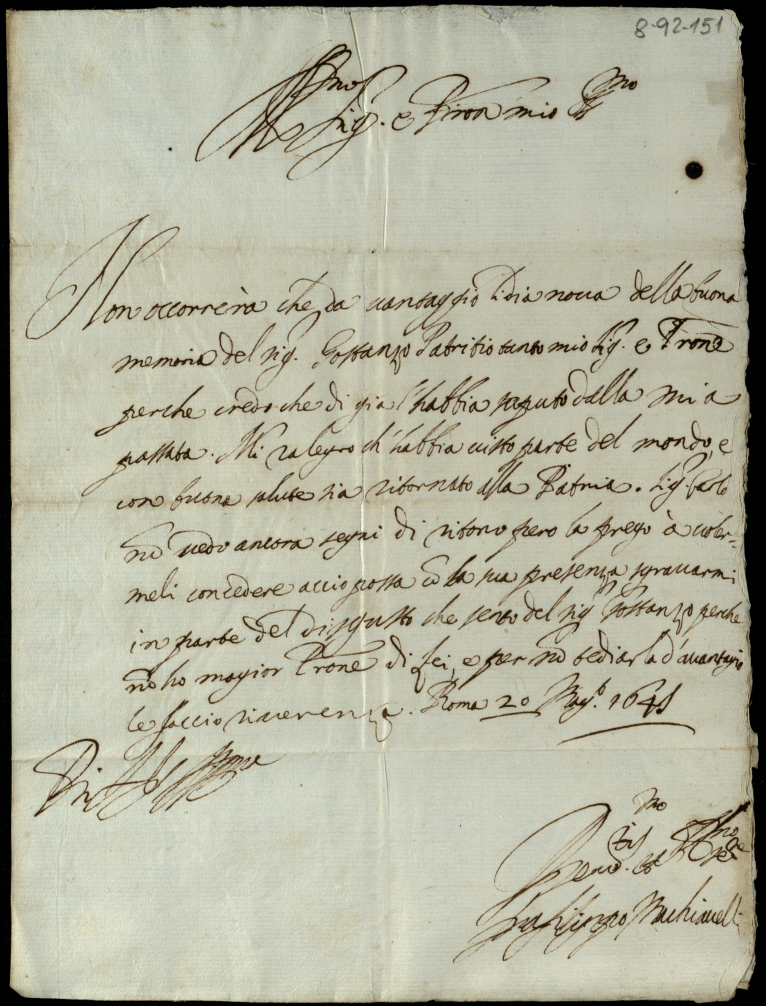 8-92-151
Ill.mo
Sig. e Pron mio
Non occorrerà che da vantaggio li dia nova della buona
memoria del sig. Gostanzo Patritio tanto mio sig. e Prone
perche credo che di gia l'habbia saputo dalla mia
passata. Mi ralegro ch'habbia visto parte del mondo, e
con buona salute sia ritornato alla Patria. sig. Carlo
nō vedo ancora segni di ritorno pero la prego à voler-
meli concedere accio possa cō la sua presenza sgravarmi
in parte del disgusto che sento del sig Gostanzo perche
nō ho magior Prone di lei, e per nō tediarla d'avantagio
le faccio riverenza. Roma 20 Mag.o 1641
Di V S Ill.ma
mo
Machiavelli